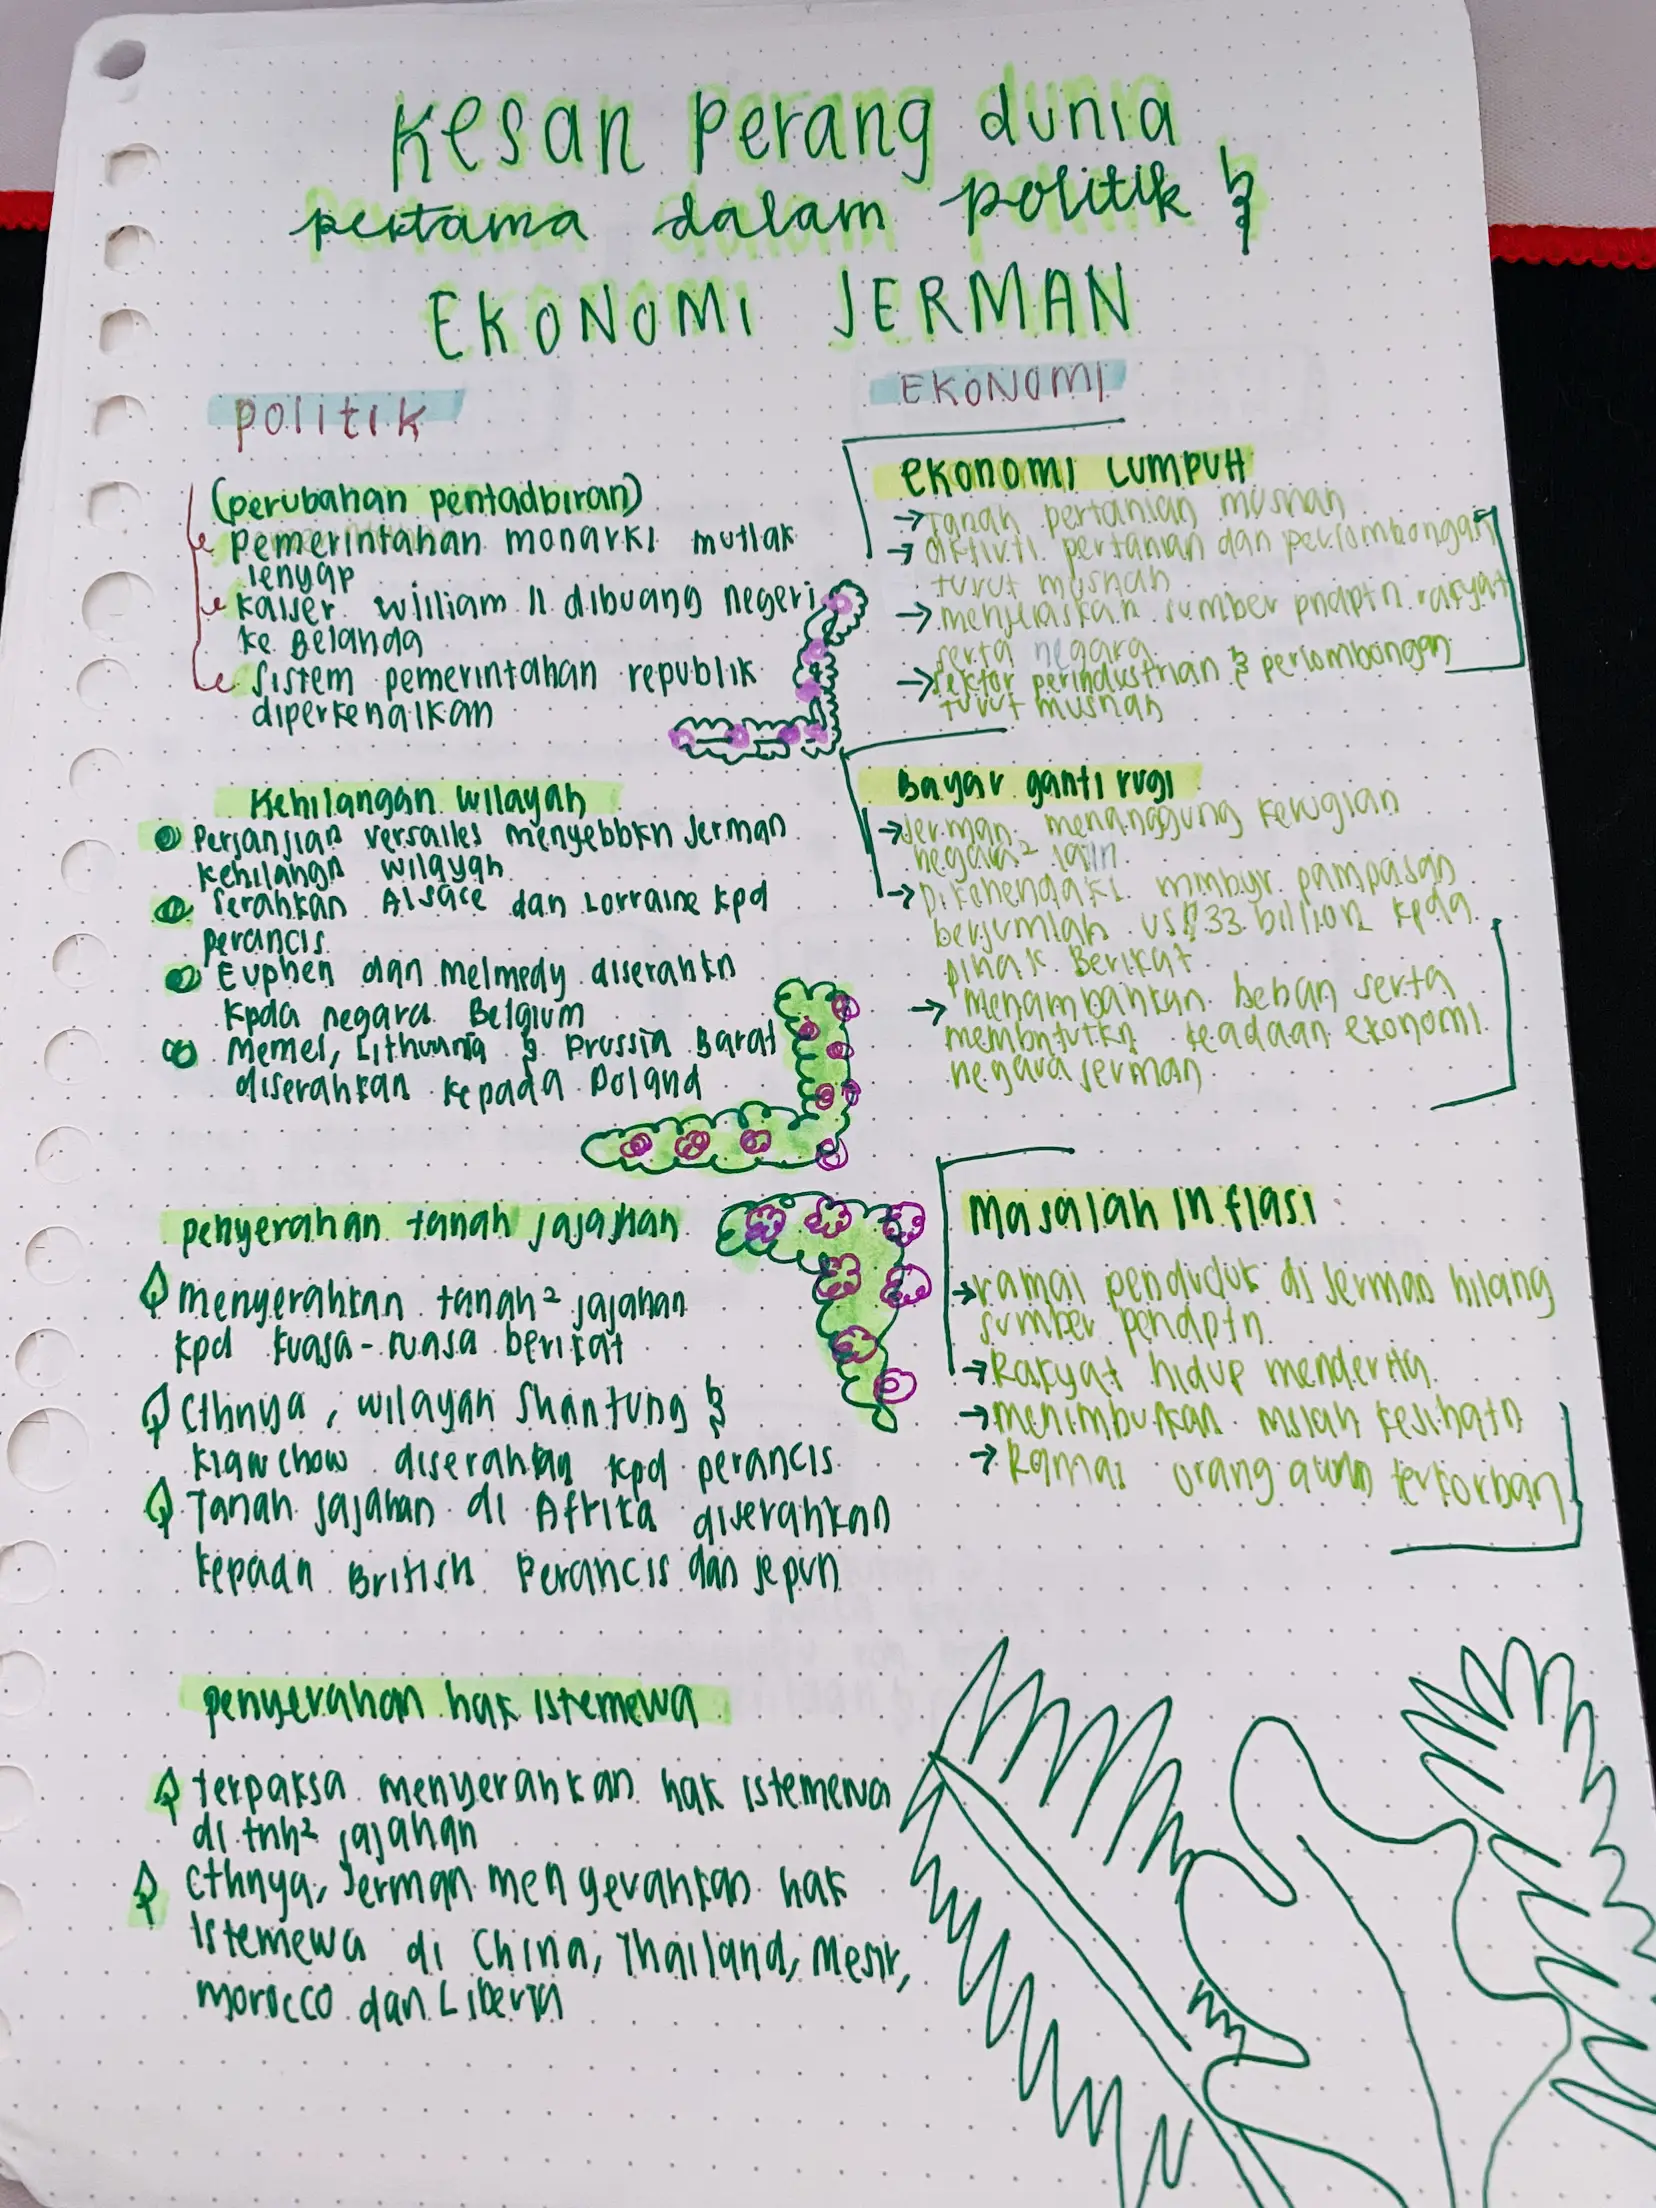 Kesan perang dunia
pertama dalam politik &
EKONOMI JERMAN
politik
(perubahan pentadbiran)
pemerintahan monarki mutlak
lenyap
kaiser william II dibuang negeri
ke Belanda
sistem pemerintahan republik
diperkenalkan
Kehilangan wilayah
Perjanjian versailles menyebbkn Jerman
kehilangn wilayah
serahkan Alsace dan Lorraine kpd
perancis
Euphen dan melmedy diserahkn
kpda negara Belgium
Memel, Lithunnia & Prussia Barat
diserahkan kepada Poland
penyerahan tanah jajahan
menyerahkan tanah² jajahan
kpd kuasa-kuasa berikat
cthnya, wilayah Shantung &
kiawchow diserahkan kpd perancis
Tanah jajahan di Afrika diserahkan
kepada British Perancis dan jepun
penyerahan hak istemewa
terpaksa menyerahkan hak istemewa
di tnh² jajahan
cthnya, Jerman menyerahkan hak
istemewa di China, Thailand, Mesir,
morocco dan Liberia
EKONOMI
ekonomi LUMPUH
→ Tanah pertanian musnah
→ aktivti pertanian dan perlombongan
turut musnah
→ menjejaskan sumber pndptn rakyat
serta negara
→ sektor perindustrian & perlombongan
turut musnah
Bayar ganti rugi
→ Jerman menanggung kerugian
negara² lain
→ Dikehendaki mmbyr pampasan
berjumlah US$33 billion kpda
pihak Berikat
→ menambahkan beban serta
membntutkn keadaan ekonomi
negara jerman
Masalah inflasi
→ ramai penduduk di Jerman hilang
sumber pendptn
→ Rakyat hidup menderita
→ menimbulkan mslah kesihatn
→ Ramai orang awam terkorban